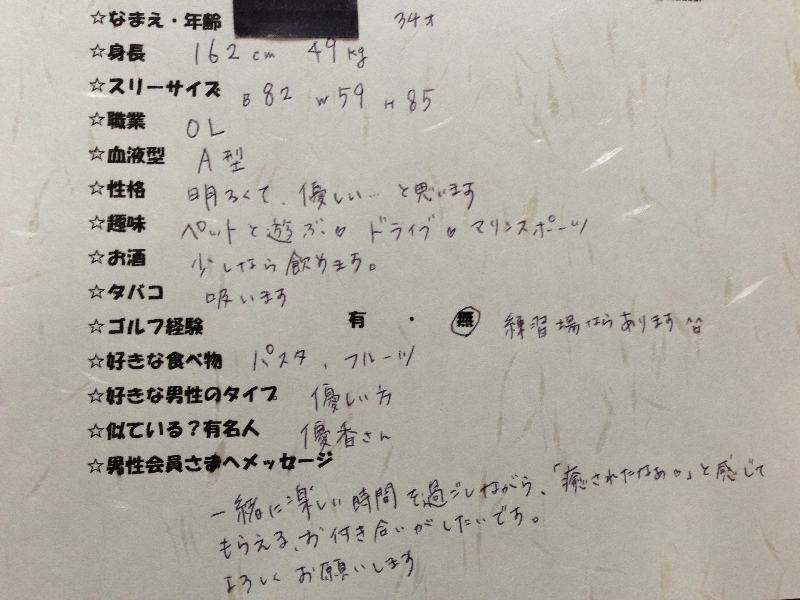 ☆なまえ・年齢 34才
☆身長 162cm 49kg
☆スリーサイズ B 82 W 59 H 85
☆職業 OL
☆血液型 A型
☆性格 明るくて、優しい…と思います
☆趣味 ペットと遊ぶ♡ ドライブ♡ マリンスポーツ
☆お酒 少しなら飲めます。
☆タバコ 吸います
☆ゴルフ経験 有 ・ 無 練習場ならあります^^
☆好きな食べ物 パスタ、フルーツ
☆好きな男性のタイプ 優しい方
☆似ている?有名人 優香さん
☆男性会員さまへメッセージ
一緒に楽しい時間を過ごしながら、「癒されたなぁ♡」と感じて
もらえる、お付き合いがしたいです。
よろしくお願いします